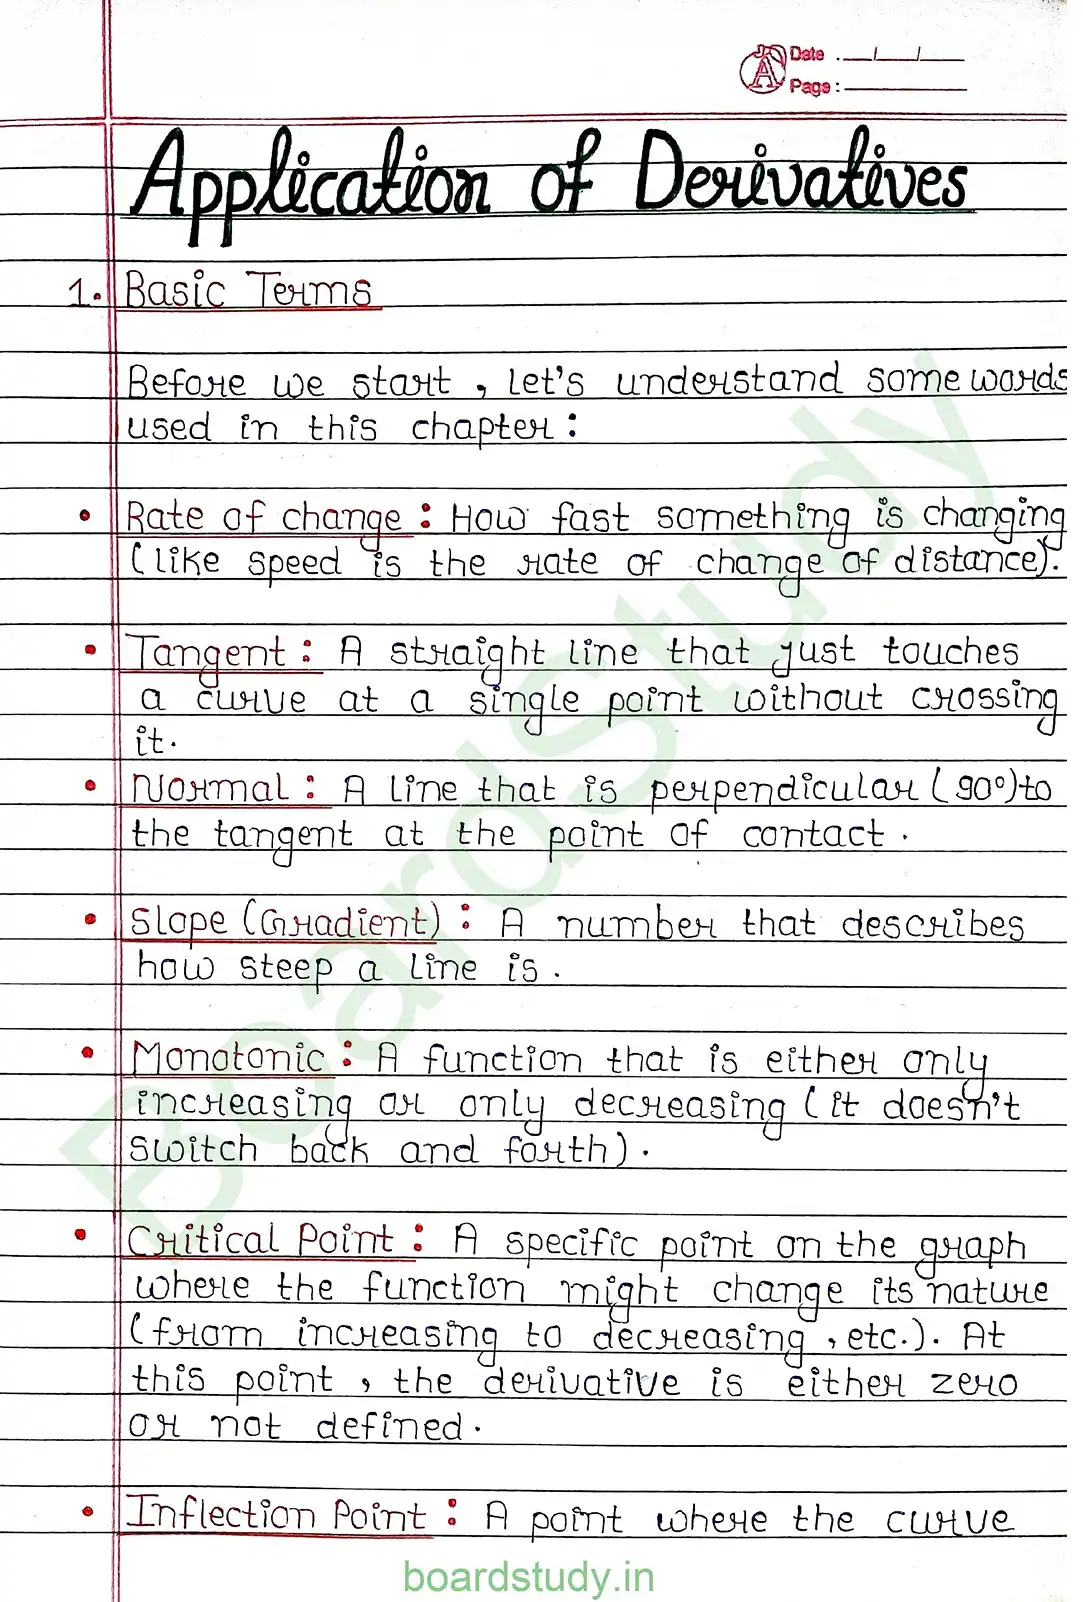 Date : __/__/__
Page : ______
Application of Derivatives
1. Basic Terms
Before we start , let's understand some words
used in this chapter :
• Rate of change : How fast something is changing
(like speed is the rate of change of distance).
• Tangent : A straight line that just touches
a curve at a single point without crossing
it.
• Normal : A line that is perpendicular (90°) to
the tangent at the point of contact .
• Slope (Gradient) : A number that describes
how steep a line is .
• Monotonic : A function that is either only
increasing or only decreasing ( it doesn't
switch back and forth ) .
• Critical Point : A specific point on the graph
where the function might change its nature
( from increasing to decreasing , etc. ). At
this point , the derivative is either zero
or not defined .
• Inflection Point : A point where the curve
BoardStudy
boardstudy.in